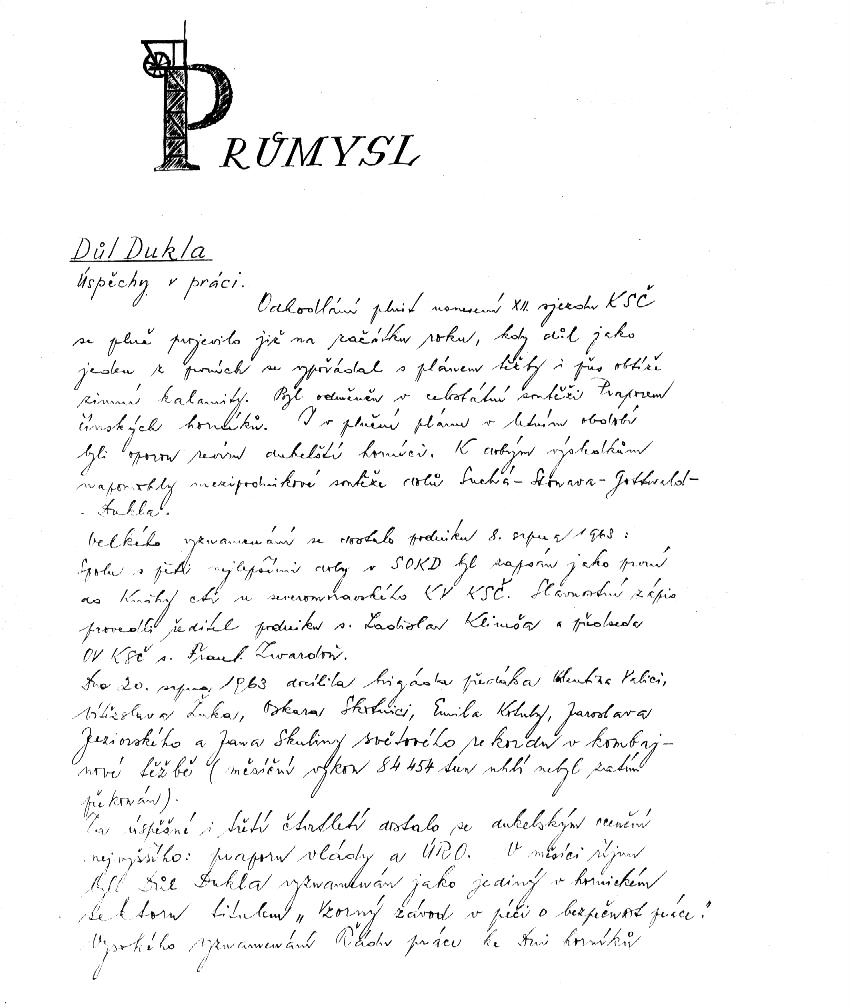 PRŮMYSL
Důl Dukla
Úspěchy v práci.
Odhodlání plnit usnesení XII. sjezdu KSČ
se plně projevilo již na začátku roku, kdy důl jako
jeden z prvních se vypořádal s plánem těžby i přes obtíže
zimní kalamity. Byl odměněn v celostátní soutěži Praporem
čínských horníků. I v plnění plánu v letním období
byli oporou revíru dukelští horníci. K dobrým výsledkům
napomohly mezipodnikové soutěže dolů Suchá-Stonava-Gottwald-
-Dukla.
Velkého vyznamenání se dostalo podniku 8. srpna 1963:
Spolu s pěti nejlepšími doly v SOKD byl zapsán jako první
do Knihy cti u severomoravského KV KSČ. Slavnostní zápis
provedli ředitel podniku s. Ladislav Klimša a předseda
OV KSČ s. Frant. Zwardoň.
Dne 20. srpna 1963 docílila brigáda předáka Velici,
Vítězslava Žuka, Oskara Skotnici, Emila Kotuby, Jaroslava
Jeziorského a Jana Skuliny světového rekordu v kombaj-
nové těžbě (měsíční výkon 84 454 tun uhlí nebyl zatím
překonán).
Za úspěšné i třetí čtvrtletí dostalo se dukelským ocenění
nejvyššího: praporu vlády a ÚRO. V měsíci říjnu
byl Důl Dukla vyznamenán jako jediný v hornickém
sektoru titulem „Vzorný závod v péči o bezpečnost práce."
Vysokého vyznamenání Řádu práce ke Dni horníků